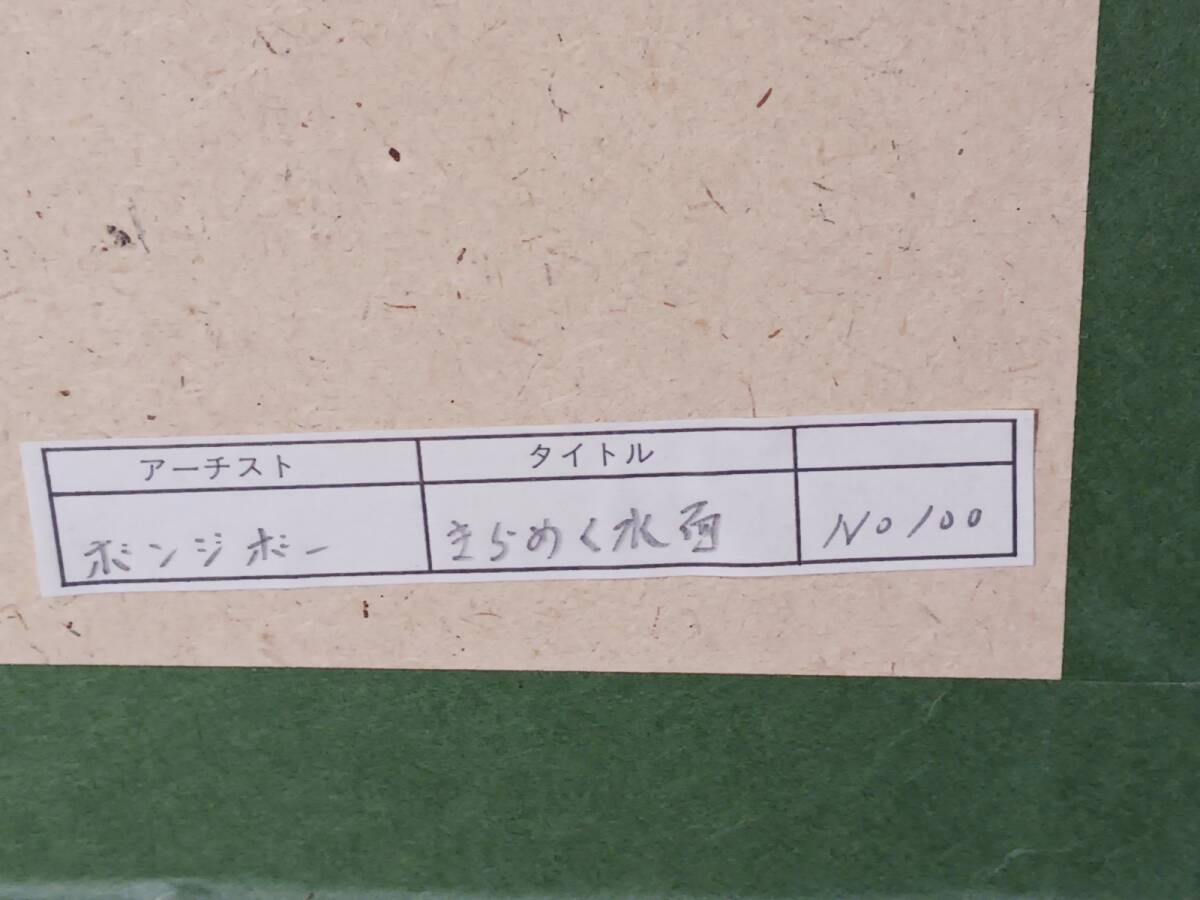 アーチスト タイトル
ボンジボー きらめく水面 NO100